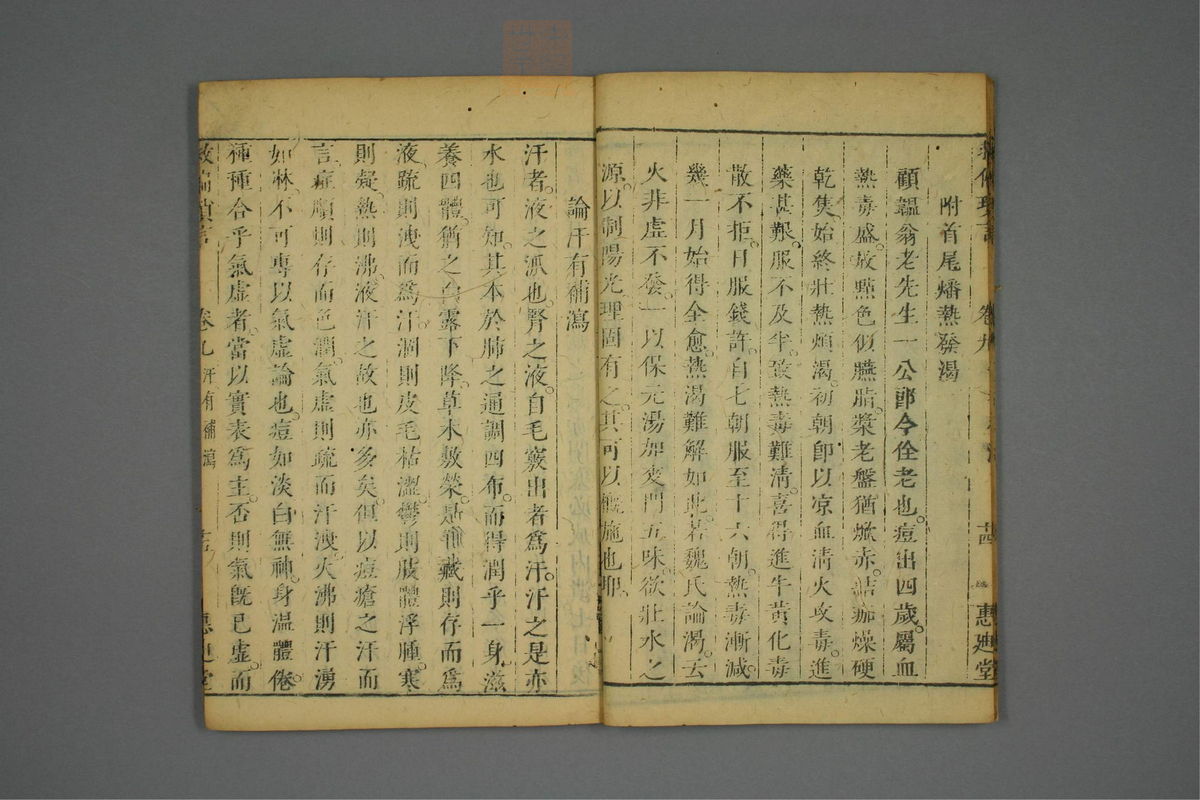 附首尾燔熱發渴
顧韞翁老先生一公郎今佺老也。痘出四歲。屬血
熱毒盛。故點色似臙脂。漿老盤猶焮赤。結痂燥硬
乾隻。始終壯熱煩渴。初朝卽以凉血淸火攻毒。進
藥甚艱。服不及半。致熱毒難淸。喜得進牛黃化毒
散不拒。日服錢許。自七朝服至十六朝。熱毒漸減。
幾一月始得全愈。熱渴難解如此。若魏氏論渴。云
火非虛不發。一以保元湯加麥門五味。欲壯水之
源。以制陽光。理固有之。其可以槪施也耶。
卷九
惠廸堂
論汗有補瀉
汗者。液之派也。腎之液。自毛竅出者爲汗。汗之是亦
水也可知。其本於肺之通調四布。而得潤乎一身。滋
養四體。猶之白露下降。草木敷榮。是懤藏則存而爲
液。疏則洩而爲汗。涸則皮毛枯澀。鬱則肢體浮腫。寒
則凝。熱則沸。液汗之故也亦多矣。但以痘瘡之汗而
言。症順則存而色潤。氣虛則疏而汗溲。火沸則汗湧
如淋。不可專以氣虛論也。痘如淡白無神。身溫體倦。
種種合乎氣虛者。當以實表爲主。否則氣旣已虛。而
救偏瑣言
卷九
汗有補瀉